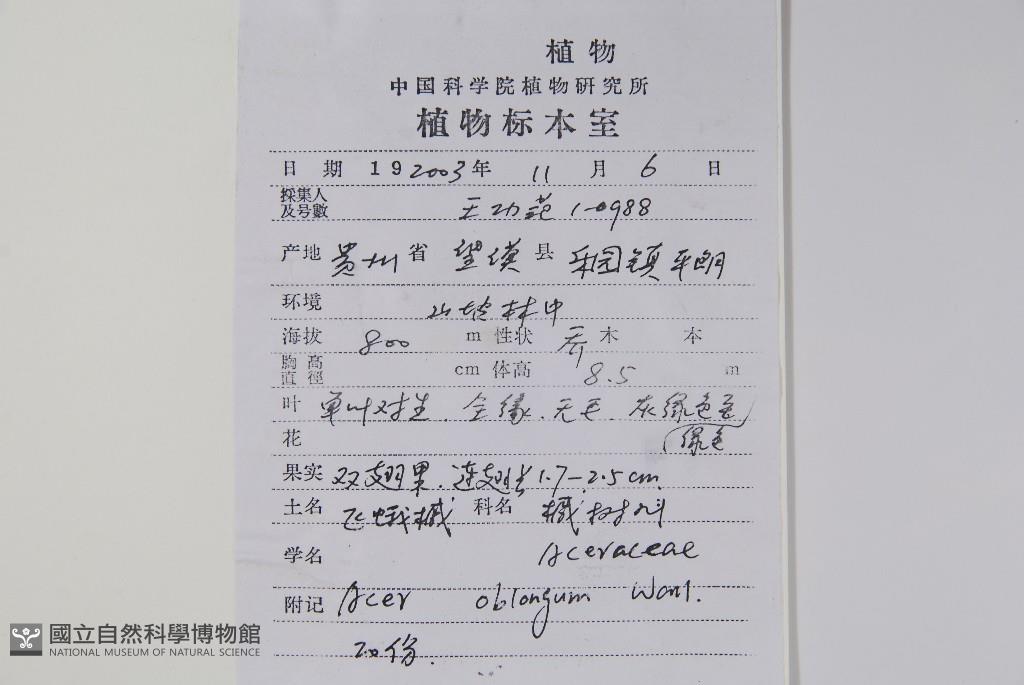 植物
中国科学院植物研究所
植物标本室
日期 19 2003年 11 月 6 日
採集人及号數 王功范 1-0988
产地 贵州省 望谟县 平园镇平朗
环境 山坡林中
海拔 800 m 性状 乔木 本
胸高直徑 cm 体高 8.5 m
叶 单叶对生. 全缘. 无毛. 灰绿色
花 绿色
果实 双翅果. 连翅长1.7-2.5cm.
土名 飞蛾槭 科名 槭树科
学名 Aceraceae
附记 Acer oblongum Wall.
20份.
國立自然科學博物館
NATIONAL MUSEUM OF NATURAL SCIENCE